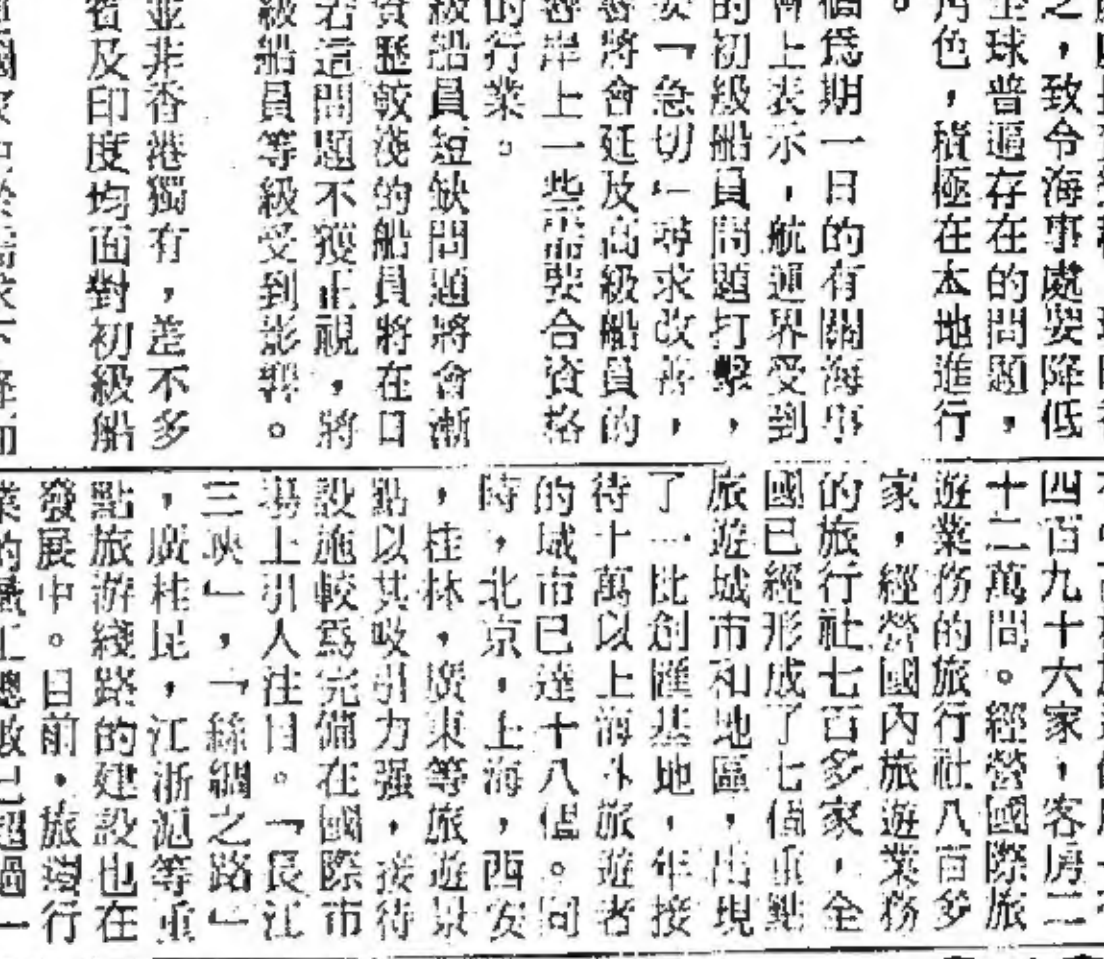 之，致令海事處要降低
全球普遍存在的問題，
角色，積極在本地進行
。
個爲期一日的有關海事
會上表示，航運界受到
的初級船員問題打擊，
要「急切」尋求改善，
將會延及高級船員的
岸上一些需要合資格
的行業。
級船員短缺問題將會漸
資歷較淺的船員將在日
若這問題不獲正視，將
級船員等級受到影響。
並非香港獨有，差不多
省及印度均面對初級船
四百九十六家，客房二
十二萬間。經營國際旅
遊業務的旅行社八百多
家，經營國內旅遊業務
的旅行社七百多家，全
國已經形成了七個重點
旅遊城市和地區，出現
了一比創匯基地，年接
待十萬以上海外旅遊者
的城市已達十八個。同
時，北京，上海，西安
，桂林，廣東等旅遊景
點以其吸引力强，接待
設施較爲完備在國際市
場上引人注目。「長江
三峽」，「絲綢之路」
，廣桂昆，江浙滬等重
點旅游綫路的建設也在
發展中。目前，旅遊行
業的職工總數已超過一